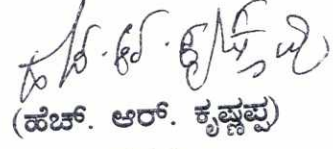 ಹೆಚ್. ಆರ್. ಕೃಷ್ಣಪ್ಪ
(ಹೆಚ್. ಆರ್. ಕೃಷ್ಣಪ್ಪ)